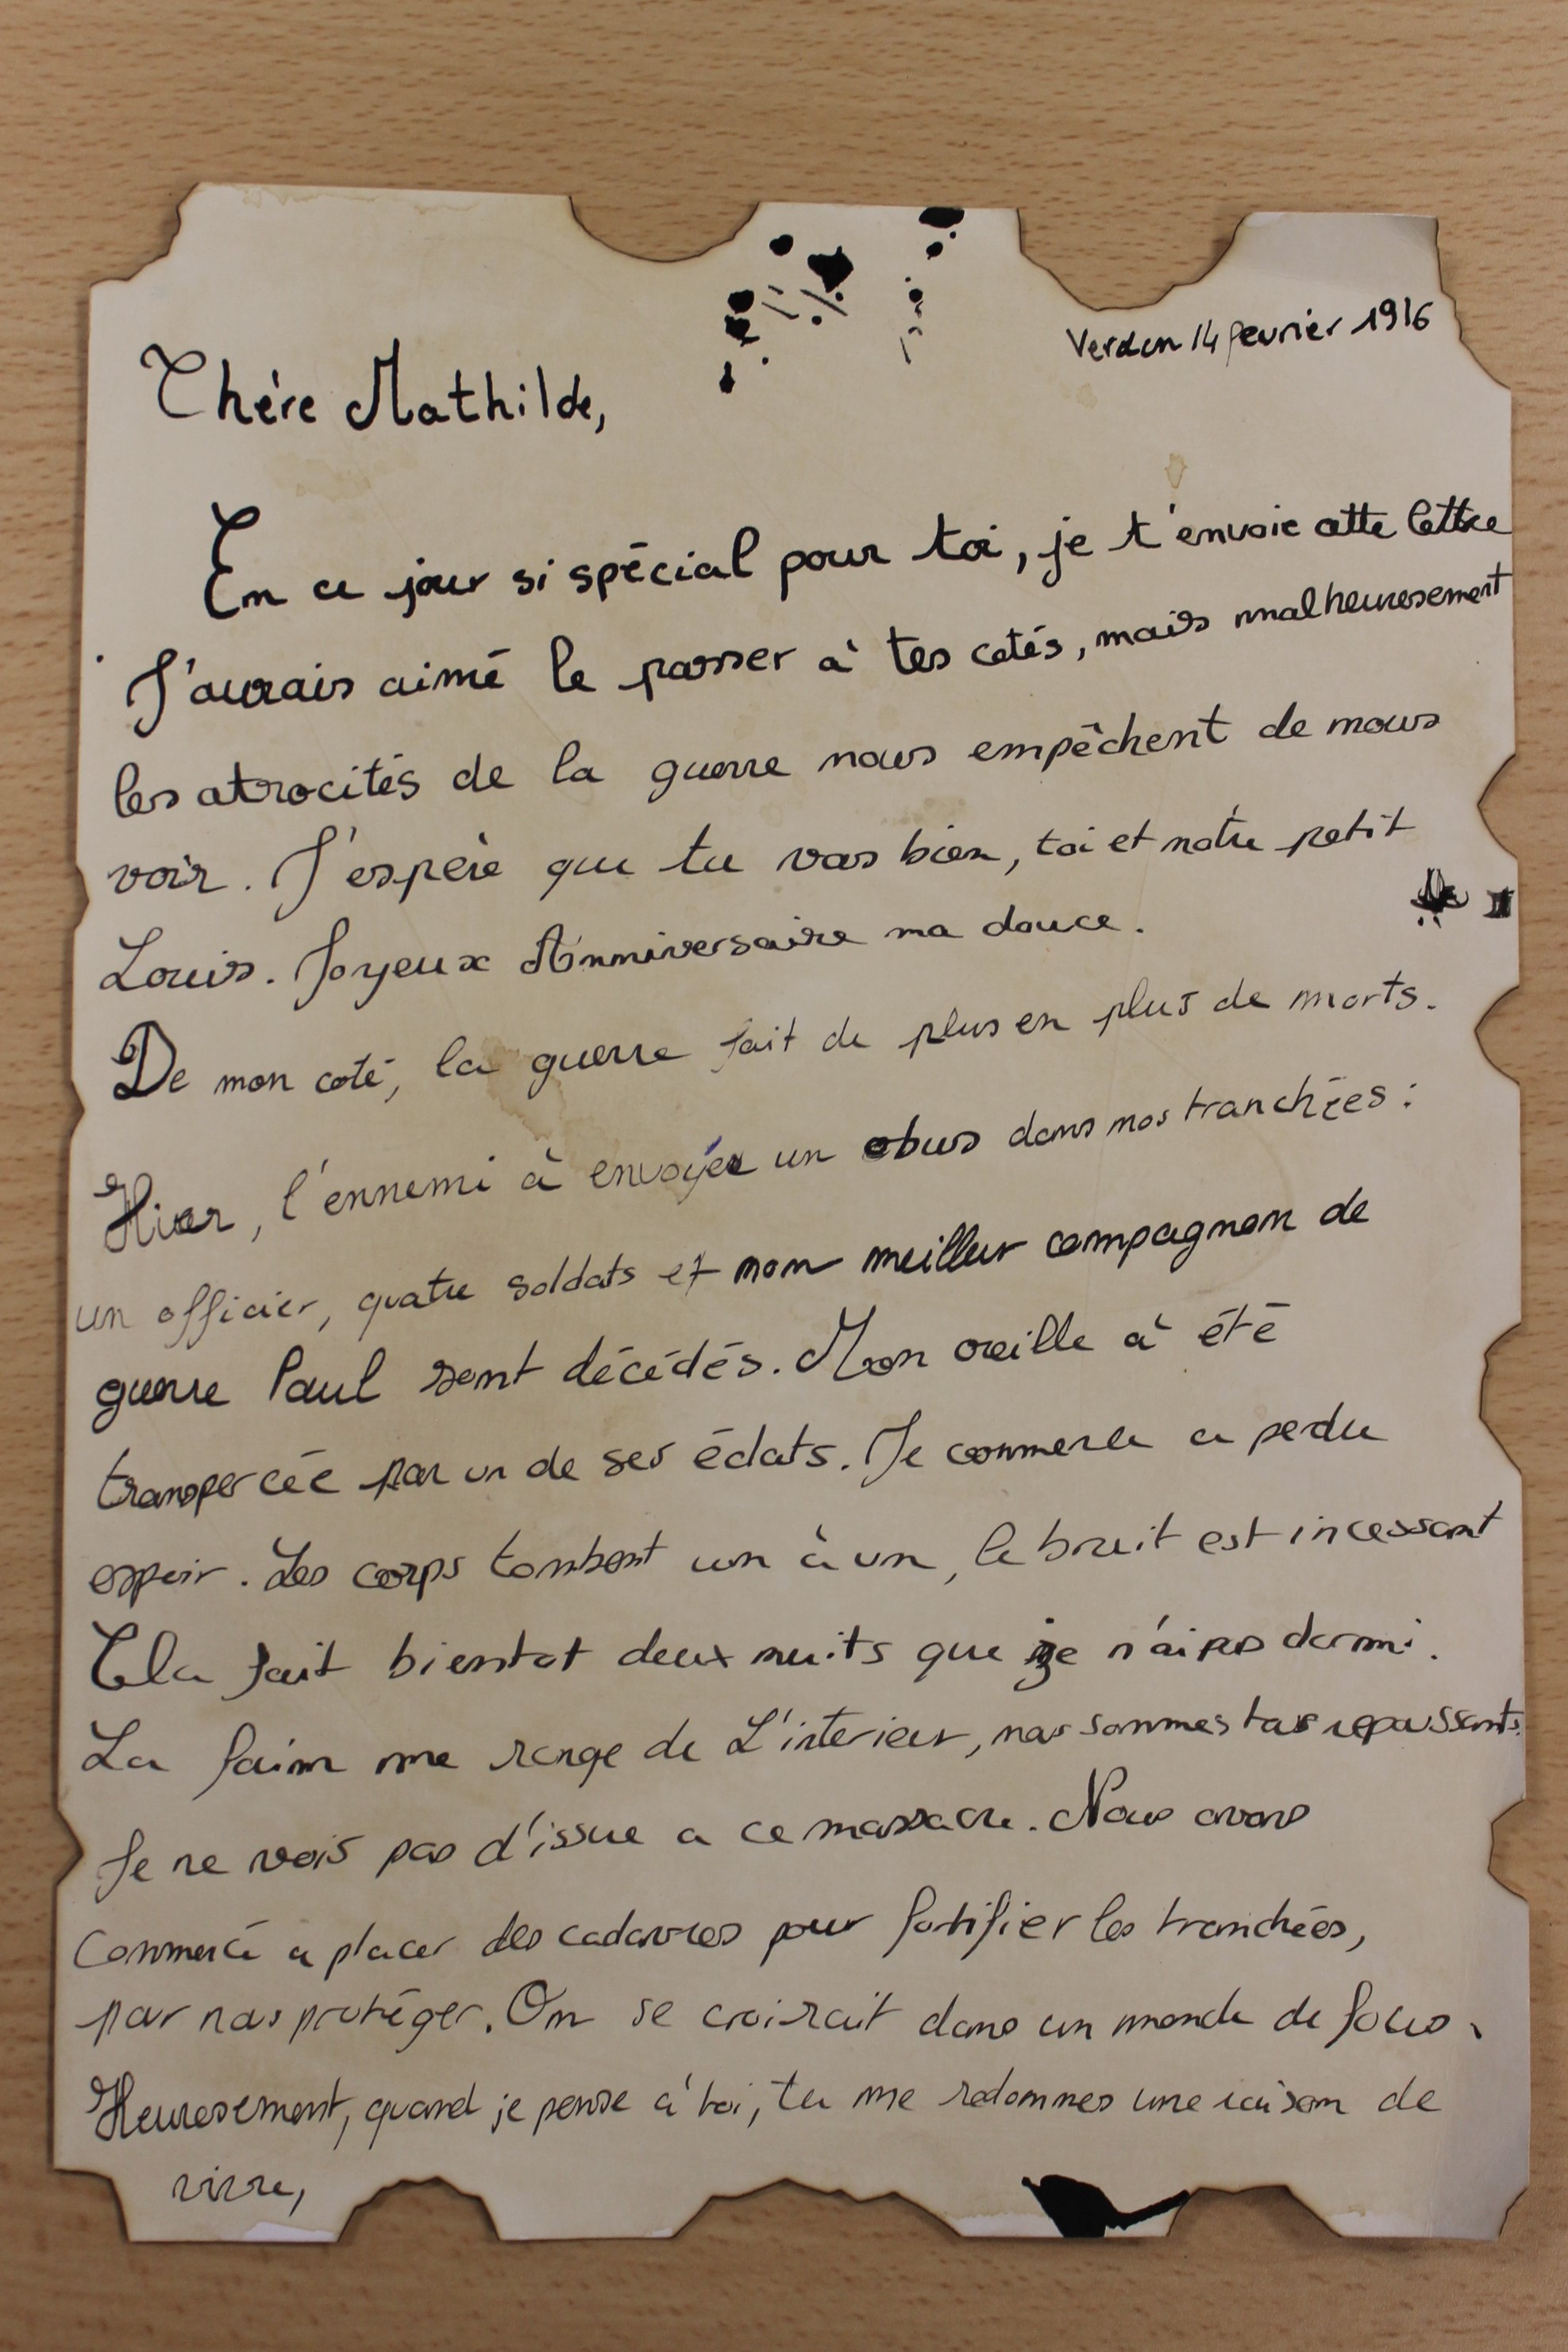 Verdun 14 fevrier 1916
Chère Mathilde,
En ce jour si spécial pour toi, je t'envoie cette lettre
J'aurais aimé le passer à tes cotés, mais malheuresement
les atrocités de la guerre nous empêchent de nous
voir. J'espère que tu vas bien, toi et notre petit
Louis. Joyeux Anniversaire ma douce.
De mon coté, la guerre fait de plus en plus de morts.
Hier, l'ennemi à envoyé un obus dans nos tranchées :
un officier, quatre soldats et mon meilleur compagnon de
guerre Paul sont décédés. Mon oreille à été
transpercée par un de ses éclats. Je commence a perdre
espoir. Les corps tombent un à un, le bruit est incessant
Cela fait bientot deux nuits que je n'ai pas dormi.
La faim me ronge de L'interieur, nous sommes tous repoussants.
Je ne vois pas d'issue a ce massacre. Nous avons
Commencé a placer des cadavres pour fortifier les tranchées,
pour nous protéger. On se croirait dans un monde de fous.
Heuresement, quand je pense à toi, tu me redonnes une raison de
vivre,